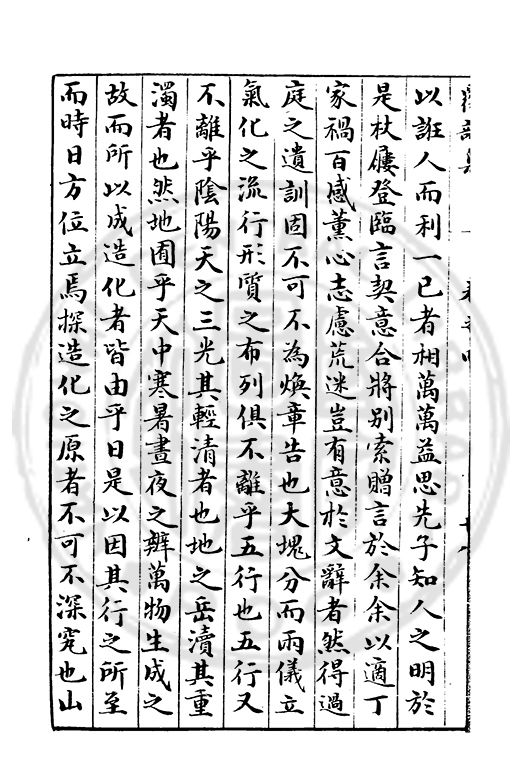 以誑人而利一已者相萬萬益思先子知人之明於
是杖屨登臨言契意合將别索贈言於余余以適丁
家禍百感薫心志慮荒迷豈有意於文辭者然得過
庭之遺訓固不可不為煥章告也大塊分而兩儀立
氣化之流行形質之布列俱不離乎五行也五行又
不離乎陰陽天之三光其輕清者也地之岳瀆其重
濁者也然地囿乎天中寒暑晝夜之辨萬物生成之
故而所以成造化者皆由乎日是以因其行之所至
而時日方位立焉探造化之原者不可不深究也山